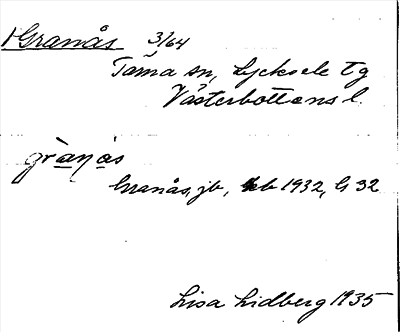 Granås 3/64
Tärna sn, Lycksele tg
Västerbottens l.
grànås
Granås, jb, 1932, G 32
Lisa Lidberg 1935